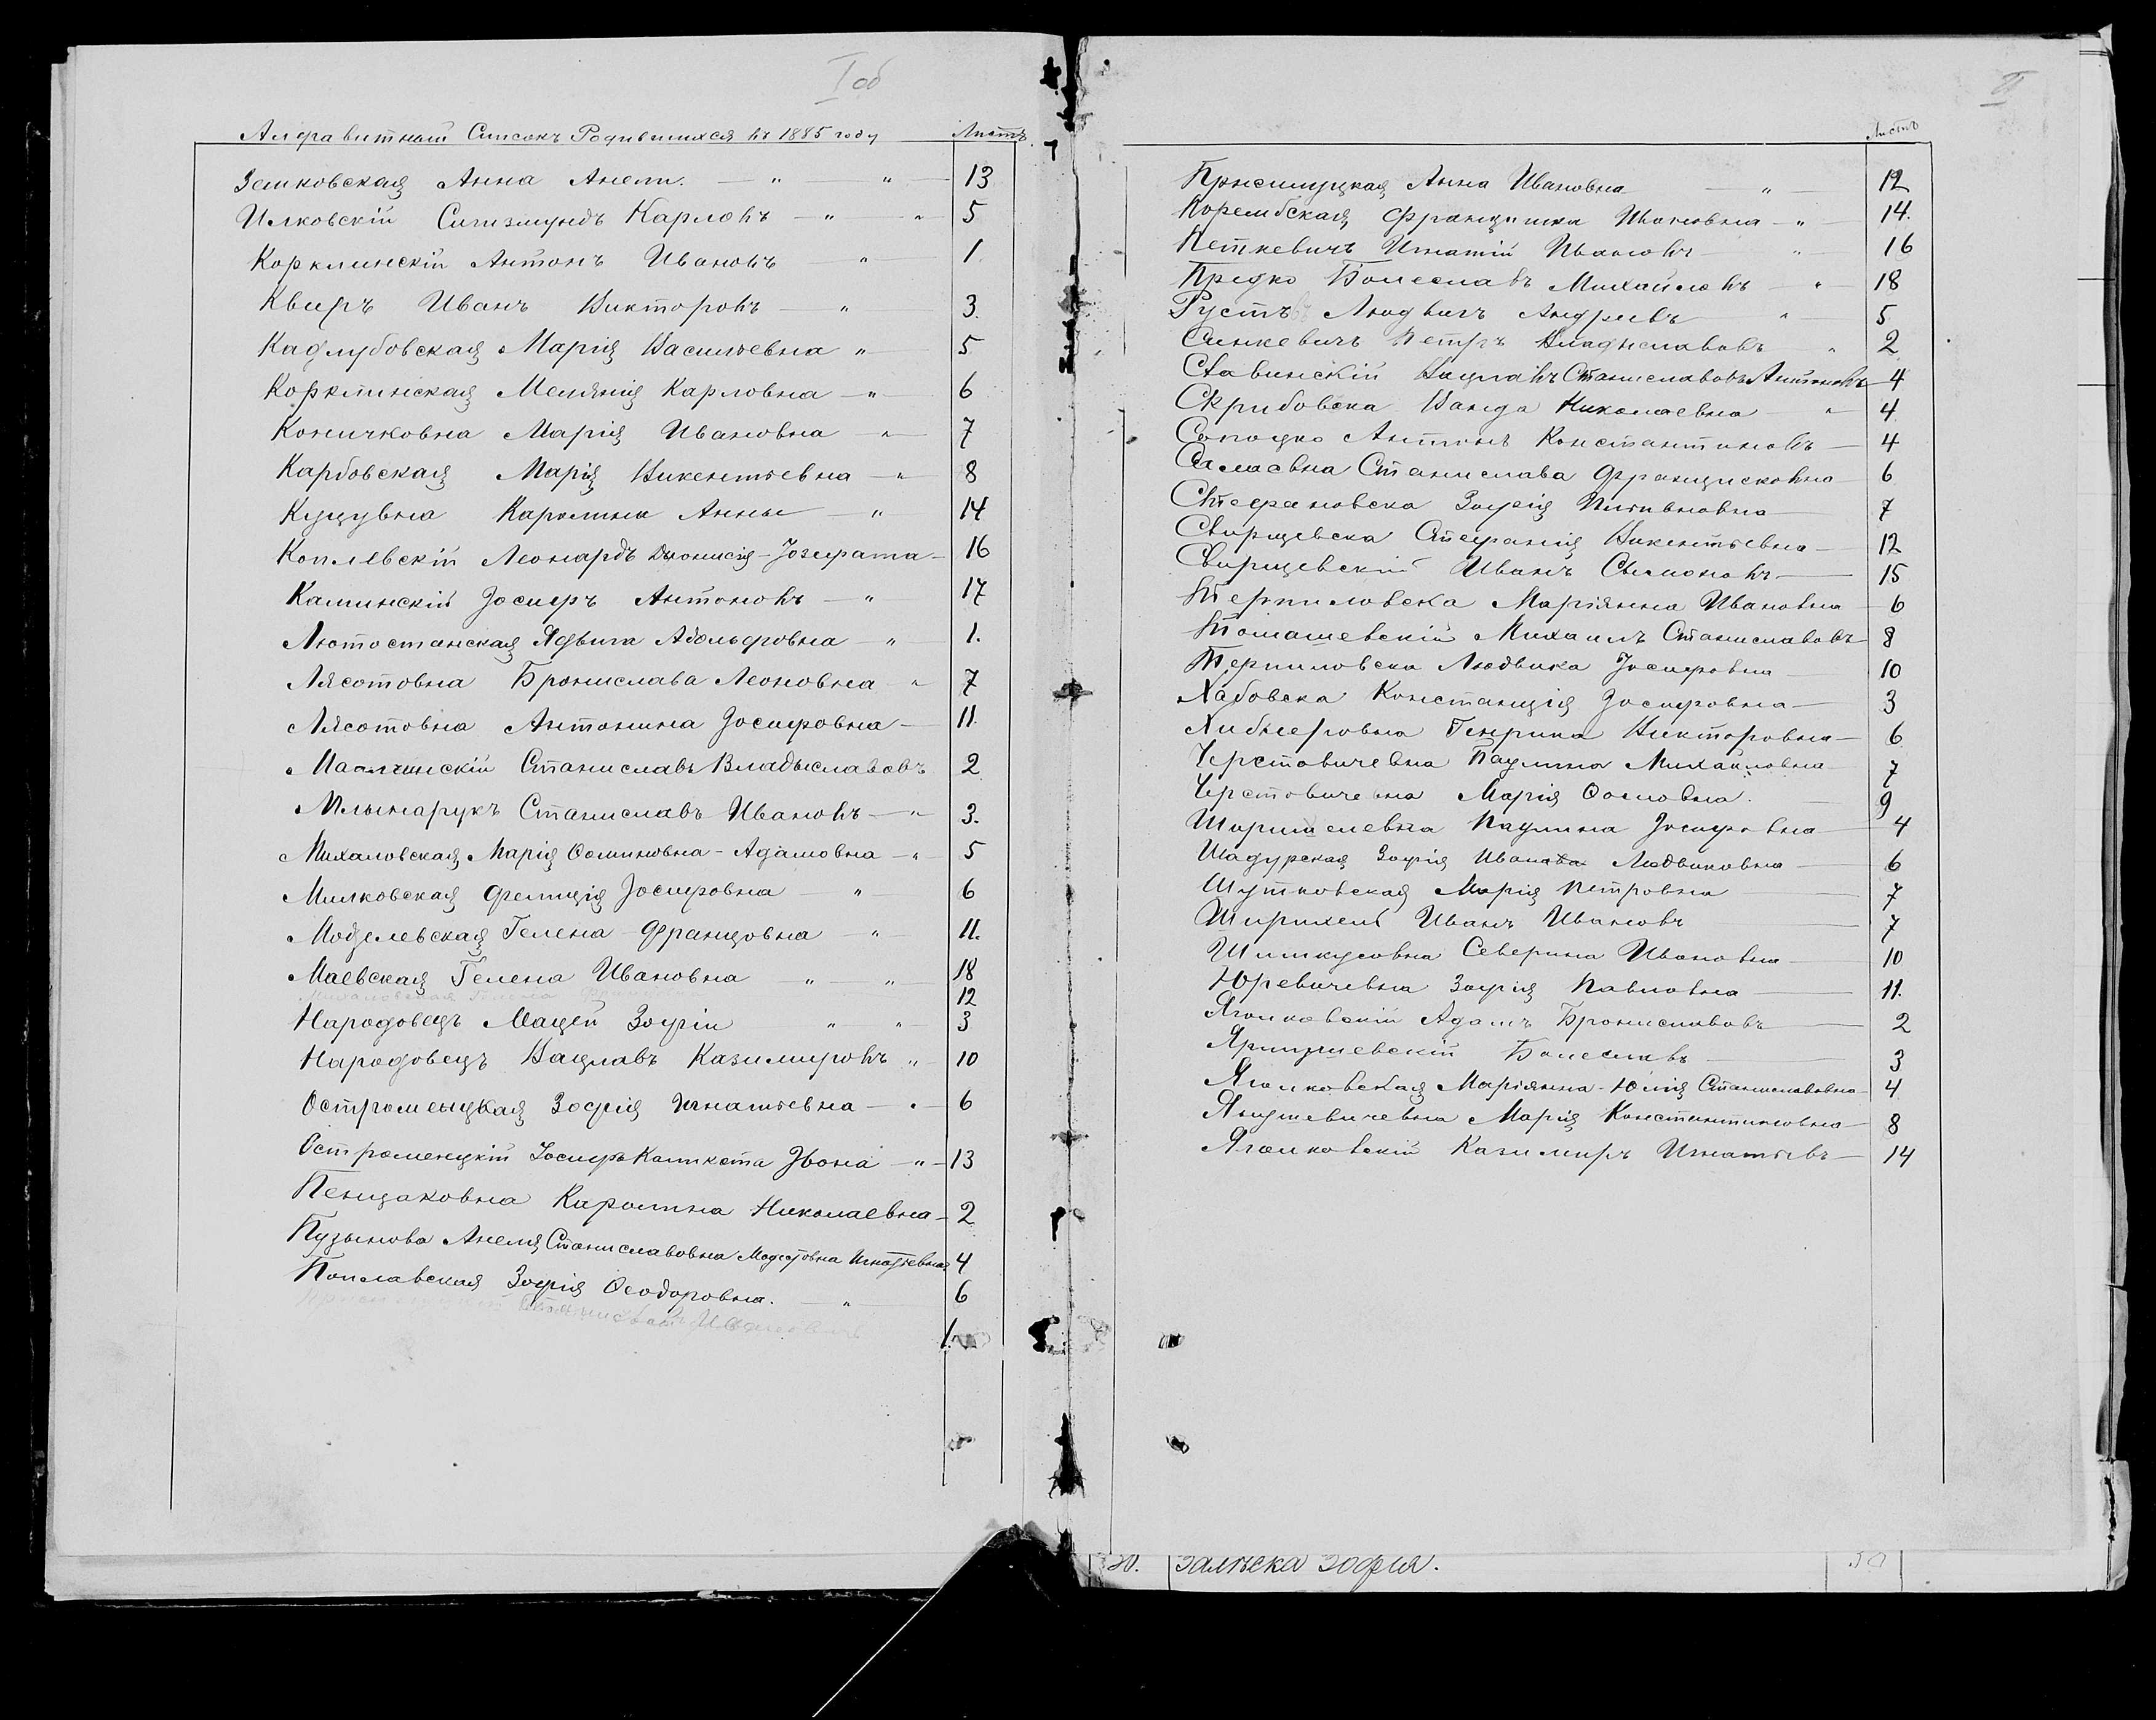 I об
Алфавитный Списокъ Родившихся въ 1885 году Листъ
Земковская Анна Анели. — " " — 13
Илковскій Сигизмундъ Карловъ — " — " 5
Корклинскій Антонъ Ивановъ — " 1
Квиръ Иванъ Викторовъ — " — 3.
Кадлубовская Марія Васильевна " — 5
Корклинская Меланія Карловна — " — 6
Коничковна Марія Ивановна " — 7
Карбовская Марія Викентьевна — " 8
Куцувна Каролина Анны — " 14
Коплевскій Леонардъ Діонисія - Іозефата — 16
Каминскій Іосифъ Антоновъ — " 17
Лютостанская Ядвига Адольфовна — " 1.
Лясотовна Бронислава Леоновна " 7
Лясотовна Антонина Іосифовна — 11.
Станиславъ Владыславовъ 2
Млынарукъ Станиславъ Ивановъ — " 3.
Михаловская Марія - Адамовна — " 5
Милковская Фелиція Іосифовна — " — 6
Модзелевская Гелена Францовна — " — 11.
Маевская Гелена Ивановна " — " — 18
12
Народовецъ Мацей Зофіи " — " — 3
Народовецъ Вацлавъ Казимировъ " — 10
Остромецкая Зофія Игнатьевна — " — 6
Остромецкій Іосифъ Каликста Ивона — " — 13
Пенцаковна Каролина Николаевна — 2
Пузынова Анеля Станиславовна Модестовна Игнатьевна 4
Поплавская Зофія Ѳеодоровна. — " — 6
Станиславъ Ивановъ 1.
II
Листъ
Анна Ивановна — " — 12
Порембская Францишка Ивановна — " 14.
Петкевичъ Игнатій Ивановъ — " 16
Предко Болеславъ Михайловъ — " — 18
Рустъ Людвигъ Андреевъ " 5
Синкевичъ Петръ Владиславовъ " 2
Савинскій Вацлавъ Станиславовъ Антоновъ — 4
Скрибовска Ванда Николаевна — " 4
Сопоцко Антонъ Константиновъ — 4
Станислава Францисковна 6
Стефановска Зофія — 7
Свирщевска Стефанія Викентьевна — 12
Свирщевскій Иванъ Сымоновъ — 15
Терпиловска Маріянна Ивановна — 6
Томашевскій Михаилъ Станиславовъ — 8
Терпиловска Людвика Іосифовна — 10
Хабовска Констанція Іосифовна — 3
Генрика Викторовна — 6
Черстовичевна Паулина Михайловна 7
Черстовичевна Марія — 9
Паулина Іосифовна — 4
Шадурская Зофія Ивановна Людвиковна — 6
Шутковская Марія Петровна — 7
Иванъ Ивановъ — 7
Шимкусовна Северина Ивановна — 10
Юревичевна Зофія Павловна — 11.
Ягомковскій Адамъ Брониславовъ — 2
Болеславъ — 3
Ягомковская Маріянна - Юлія Станиславовна 4
Янушевичевна Марія Константиновна — 8
Ягомковскій Казимиръ Игнатьевъ — 14
20. Залѣска Зофія.